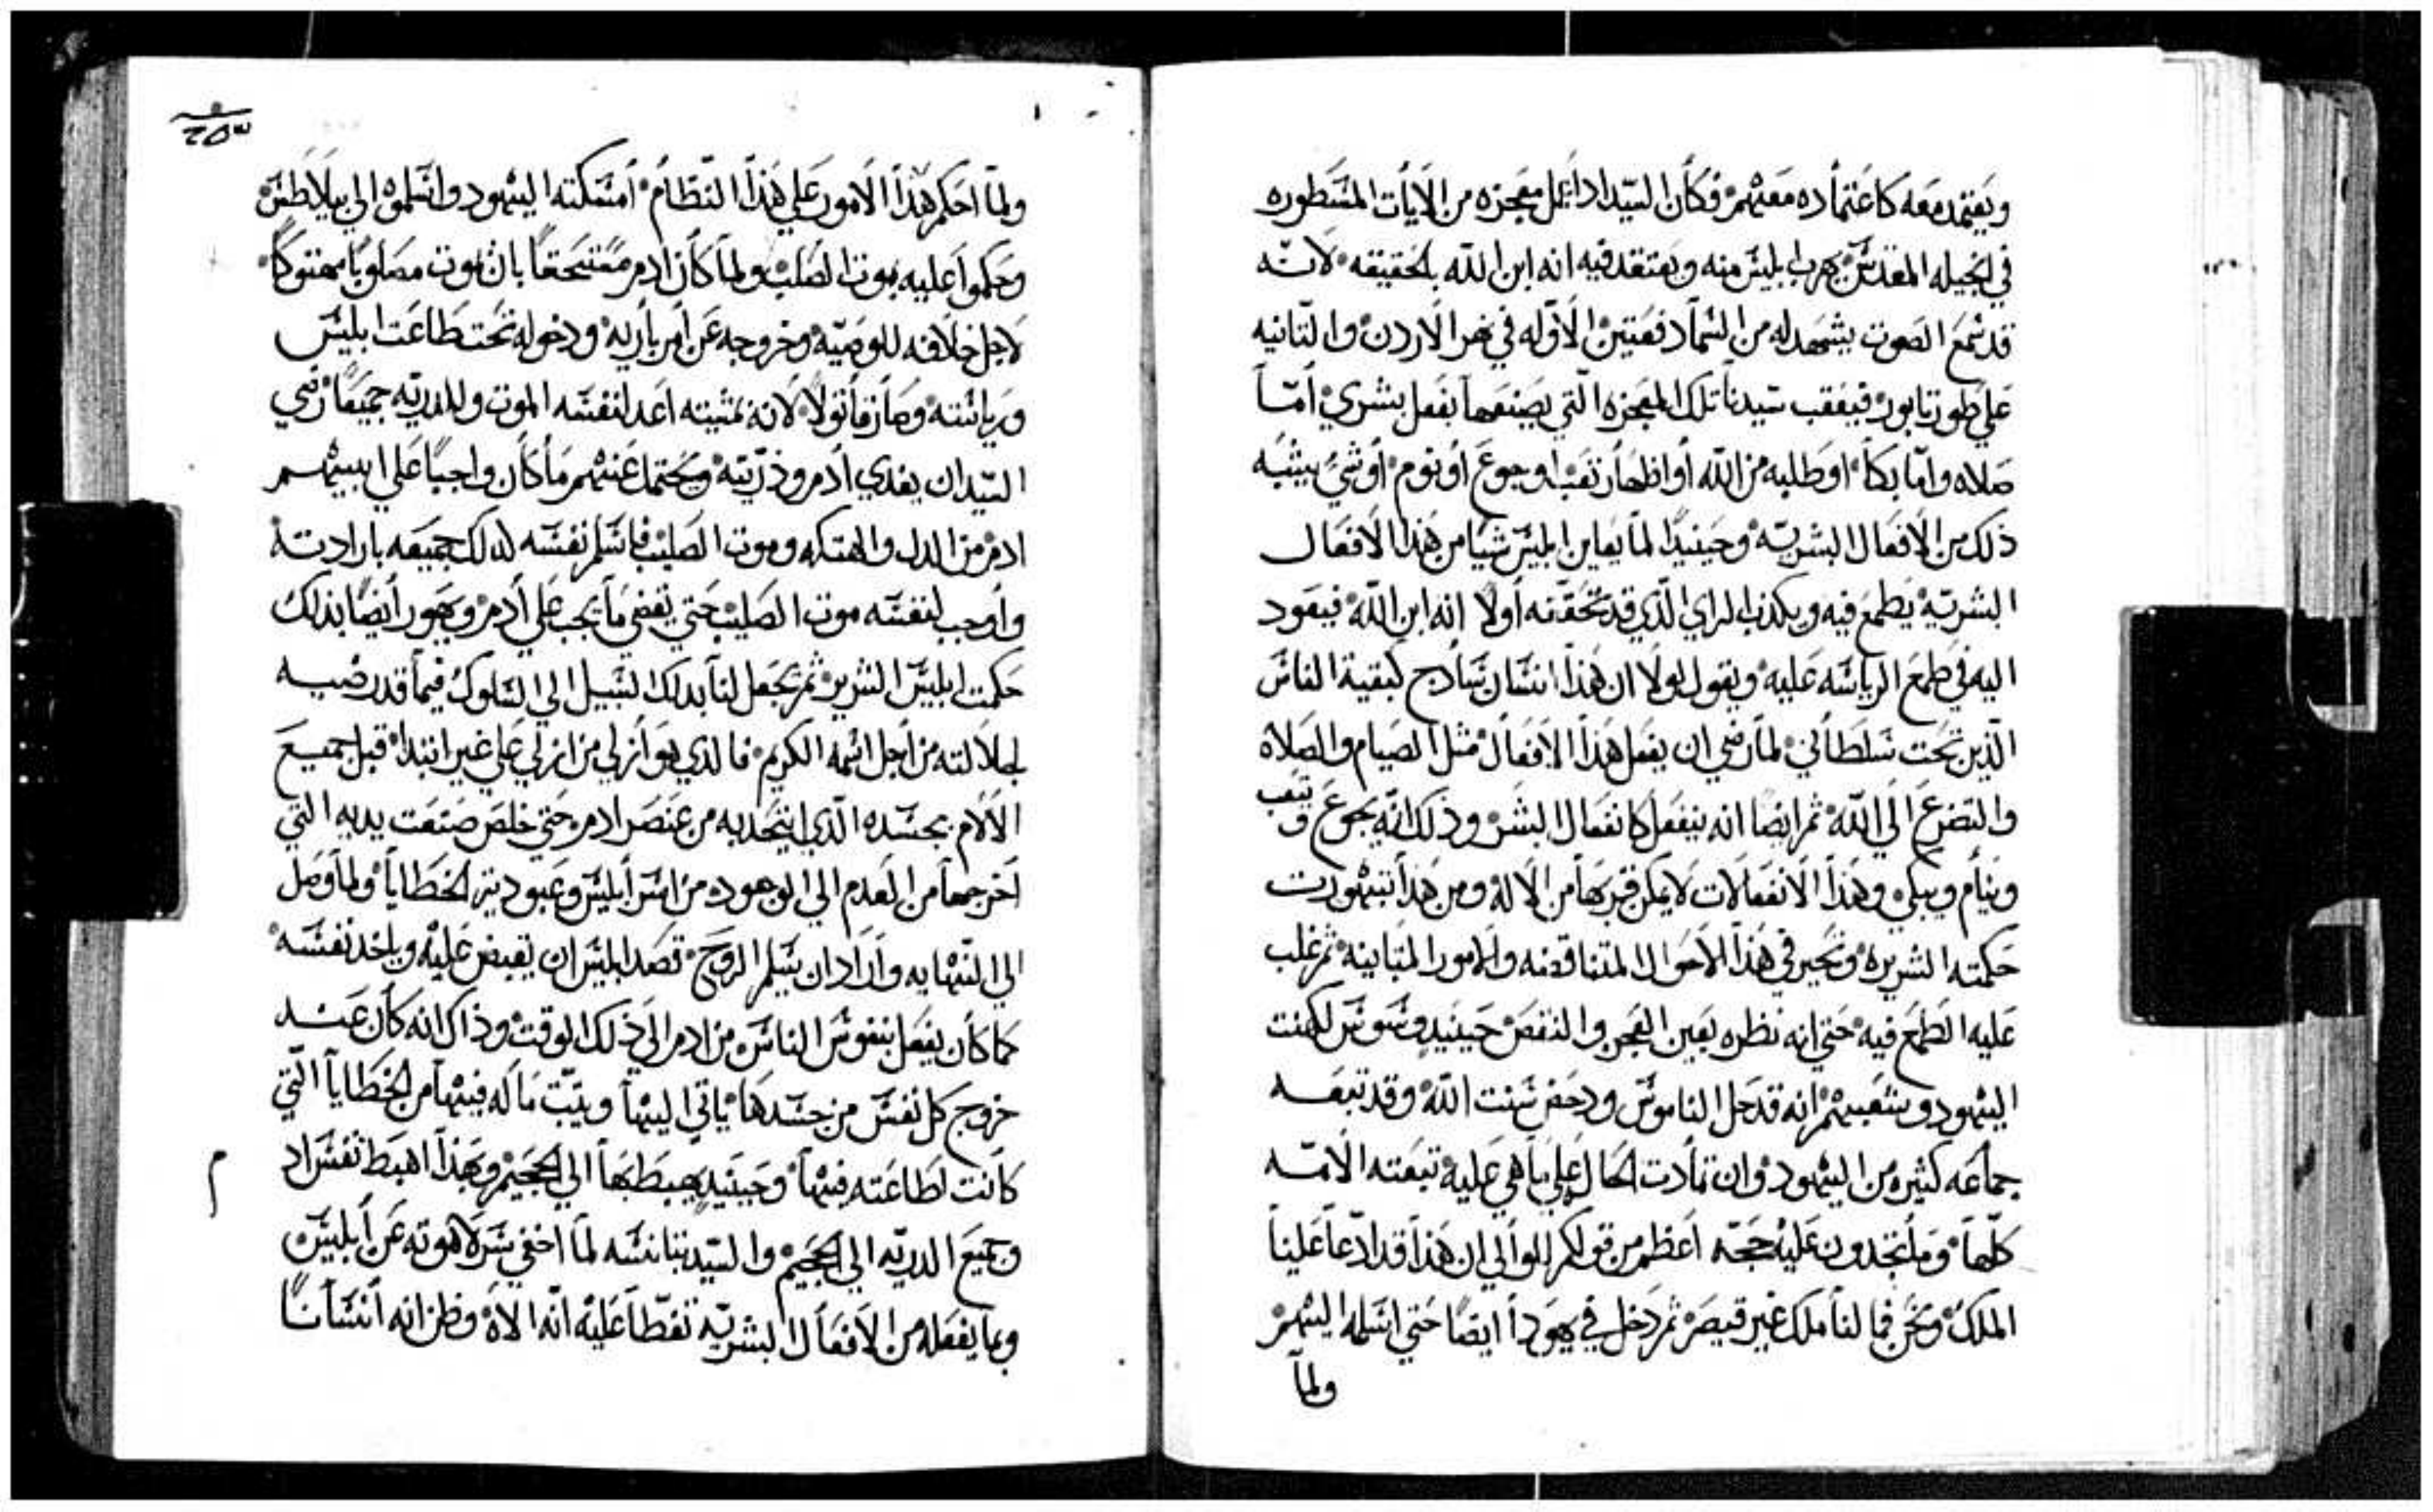 ويعتمد معه كاعتماده معهم فكان السيد اذا عمل معجزه من الايات المسطوره
في انجيله المقدس يهرب ابليس منه ويعتقد فيه انه ابن الله بالحقيقه لانه
قد سمع الصوت يشهد له من السما دفعتين الاوله في نهر الاردن والتانيه
علي طور تابور فيعقب سيدنا تلك المعجزه التي يصنعها بفعل بشري اما
صلاه واما بكا او طلبه من الله او اظهار تعب او جوع او نوم او شي يشبه
ذلك من الافعال البشريه وحينيذا لما يعاين ابليس شيا من هذا الافعال
البشريه يطمع فيه ويكذب الراي الذي قد تحققه اولا انه ابن الله فيعود
اليه في طمع الرياسه عليه ويقول لولا ان هذا انسان سادج كبقية الناس
الذين تحت سلطاني لما رضي ان يفعل هذا الافعال مثل الصيام والصلاه
والتضرع الي الله ثم ايضا انه ينفعل كانفعال البشر وذلك انه يجوع ويتعب
وينام ويبكي وهذا الانفعالات لا يمكن قربها من الاله ومن هذا تبهورت
حكمته الشريره وتحير في هذا الاحوال المتناقضه والامور المتباينه ثم غلب
عليه الطمع فيه حتي انه نظره بعين العجز والنقص حينيد وسوس لكهنت
اليهود وشعبهم انه قد حل الناموس ودحض سنت الله وقد تبعه
جماعه كثيره من اليهود وان تمادت الحال علي ما هي عليه تبعته الامه
كلها وما تجدون عليه حجه اعظم من قولكم للوالي ان هذا قد ادعا علينا
الملك ونحن فما لنا ملك غير قيصر ثم دخل في يهودا ايضا حتي اسلمه اليهم
ولما
٢٥٣
ولما احكم هذا الامور علي هذا النظام امسكته اليهود واسلموه الي بيلاطس
وحكموا عليه بموت الصلب ولما كان ادم مستحقا بان يموت مصلوبا مهتوكا
لاجل خلافه للوصيه وخروجه عن امر باريه ودخوله تحت طاعت ابليس
ورياسته وصار قاتولا لانه بمشيته اعد لنفسه الموت وللدريه جميعا رضي
السيد ان يفدي ادم وذريته ويحتمل عنهم ما كان واجبا علي ابيهم
ادم من الدل والهتكه وموت الصليب فاسلم نفسه لدلك جميعه بارادته
واوجب لنفسه موت الصليب حتي يقضي ما يجب علي ادم ويهور ايضا بذلك
حكمت ابليس الشرير ثم يجعل لنا بدلك السبيل الي السلوك فيما قد رضيه
لجلالته من اجل اسمه الكريم فالدي هو ازلي من ازلي علي غير ابتدا قبل جميع
الالام بجسده الذي اتحد به من عنصر ادم حتي خلص صنعت يديه التي
اخرجها من العدم الي الوجود من اسر ابليس وعبودية الخطايا ولما وصل
الي النهايه واراد ان يسلم الروح قصد ابليس ان يقبض عليه وياخد نفسه
كما كان يفعل بنفوس الناس من ادم الي ذلك الوقت وذاك انه كان عند
خروج كل نفس من جسدها ياتي اليها ويتبت ما له فيها من الخطايا التي
كانت لطاعته فيها وحينيد يهبطها الي الجحيم وبهذا اهبط نفس اد
م
وجميع الدريه الي الجحيم والسيد بتانسه لما اخفي سر لاهوته عن ابليس
وبما يفعله من الافعال البشريه تغطا عليه انه الاه وظن انه انسانا